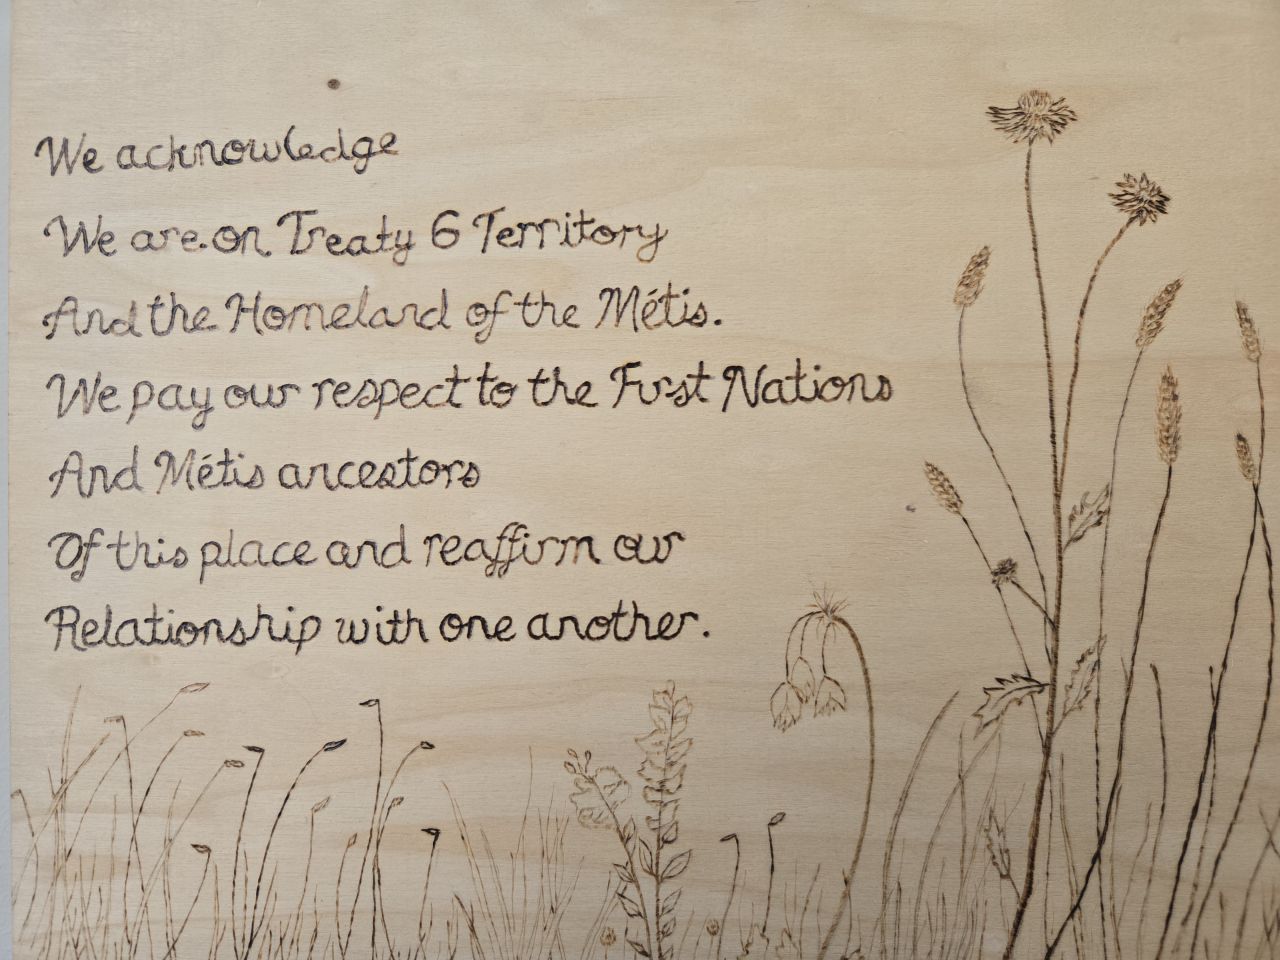 We acknowledge
We are on Treaty 6 Territory
And the Homeland of the Métis.
We pay our respect to the First Nations
And Métis ancestors
Of this place and reaffirm our
Relationship with one another.